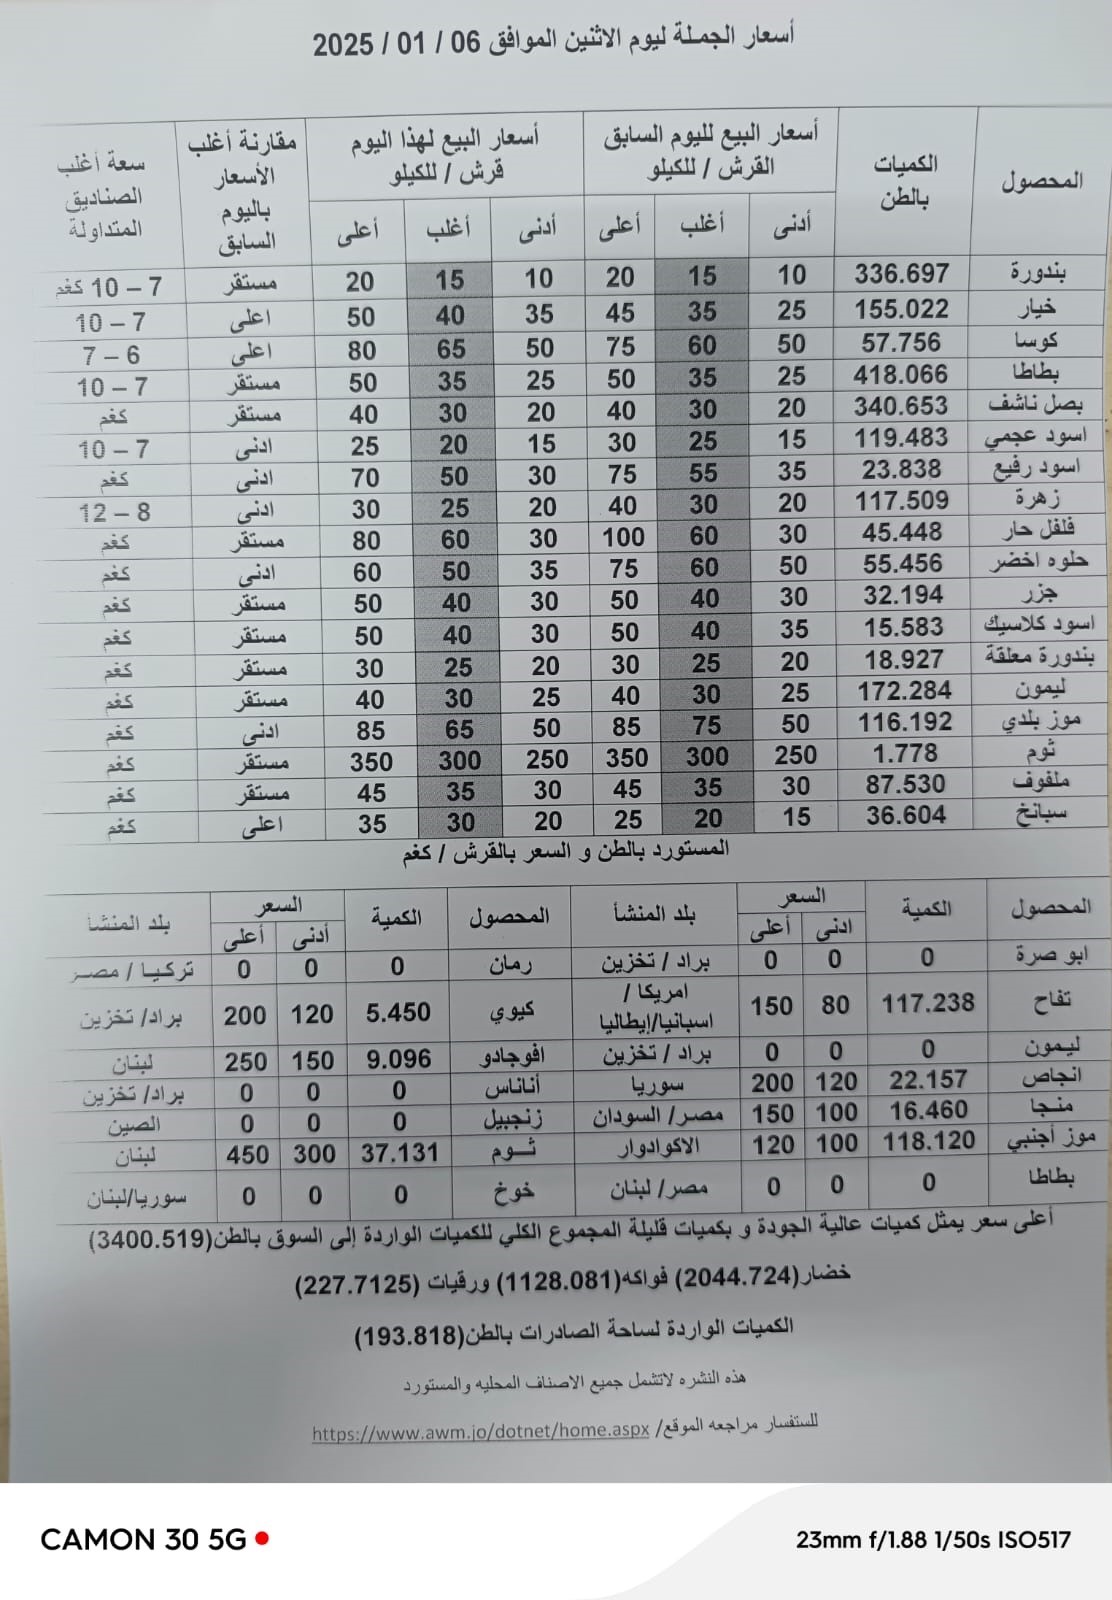 أسعار الجملة ليوم الاثنين الموافق 06 / 01 / 2025
المحصول الكميات بالطن أسعار البيع لليوم السابق القرش / للكيلو أسعار البيع لهذا اليوم قرش / للكيلو مقارنة أغلب الأسعار باليوم السابق سعة أغلب الصناديق المتداولة
أدنى أغلب أعلى أدنى أغلب أعلى
بندورة 336.697 10 15 20 10 15 20 مستقر 7 – 10 كغم
خيار 155.022 25 35 45 35 40 50 اعلى 7 – 10
كوسا 57.756 50 60 75 50 65 80 اعلى 6 – 7
بطاطا 418.066 25 35 50 25 35 50 مستقر 7 – 10
بصل ناشف 340.653 20 30 40 20 30 40 مستقر كغم
اسود عجمي 119.483 15 25 30 15 20 25 ادنى 7 – 10
اسود رفيع 23.838 35 55 75 30 50 70 ادنى كغم
زهرة 117.509 20 30 40 20 25 30 ادنى 8 – 12
فلفل حار 45.448 30 60 100 30 60 80 مستقر كغم
حلوه اخضر 55.456 50 60 75 35 50 60 ادنى كغم
جزر 32.194 30 40 50 30 40 50 مستقر كغم
اسود كلاسيك 15.583 35 40 50 30 40 50 مستقر كغم
بندورة معلقة 18.927 20 25 30 20 25 30 مستقر كغم
ليمون 172.284 25 30 40 25 30 40 مستقر كغم
موز بلدي 116.192 50 75 85 50 65 85 ادنى كغم
ثوم 1.778 250 300 350 250 300 350 مستقر كغم
ملفوف 87.530 30 35 45 30 35 45 مستقر كغم
سبانخ 36.604 15 20 25 20 30 35 اعلى كغم
المستورد بالطن و السعر بالقرش / كغم
المحصول الكمية السعر بلد المنشأ المحصول الكمية السعر بلد المنشأ
ادنى أعلى أدنى أعلى
ابو صرة 0 0 0 براد / تخزين رمان 0 0 0 تركيا / مصر
تفاح 117.238 80 150 امريكا / اسبانيا/إيطاليا كيوي 5.450 120 200 براد/ تخزين
ليمون 0 0 0 براد / تخزين افوجادو 9.096 150 250 لبنان
انجاص 22.157 120 200 سوريا أناناس 0 0 0 براد/ تخزين
منجا 16.460 100 150 مصر/ السودان زنجبيل 0 0 0 الصين
موز أجنبي 118.120 100 120 الاكوادوار ثــوم 37.131 300 450 لبنان
بطاطا 0 0 0 مصر/ لبنان خوخ 0 0 0 سوريا/لبنان
أعلى سعر يمثل كميات عالية الجودة و بكميات قليلة المجموع الكلي للكميات الواردة إلى السوق بالطن(3400.519)
خضار(2044.724) فواكه(1128.081) ورقيات (227.7125)
الكميات الواردة لساحة الصادرات بالطن(193.818)
هذه النشره لاتشمل جميع الاصناف المحليه والمستورد
للستفسار مراجعه الموقع/ https://www.awm.jo/dotnet/home.aspx
CAMON 30 5G
23mm f/1.88 1/50s ISO517